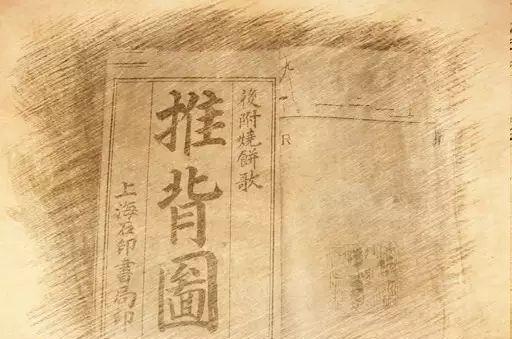 後附燒餅歌
推背圖
上海石印書局印
九一
R